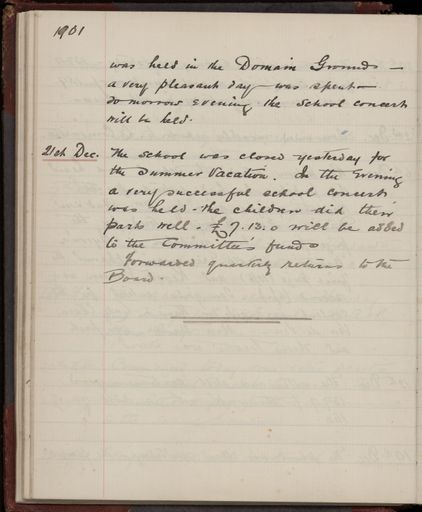 1901
was held in the Domain Grounds —
a very pleasant day was spent —
Tomorrow evening the School concert
will be held.
21st Dec. The School was closed yesterday for
the Summer Vacation. In the Evening
a very successful school concert
was held - the children did their
parts well. £7.13.0 will be added
to the Committee's funds
Forwarded quarterly returns to the
Board.